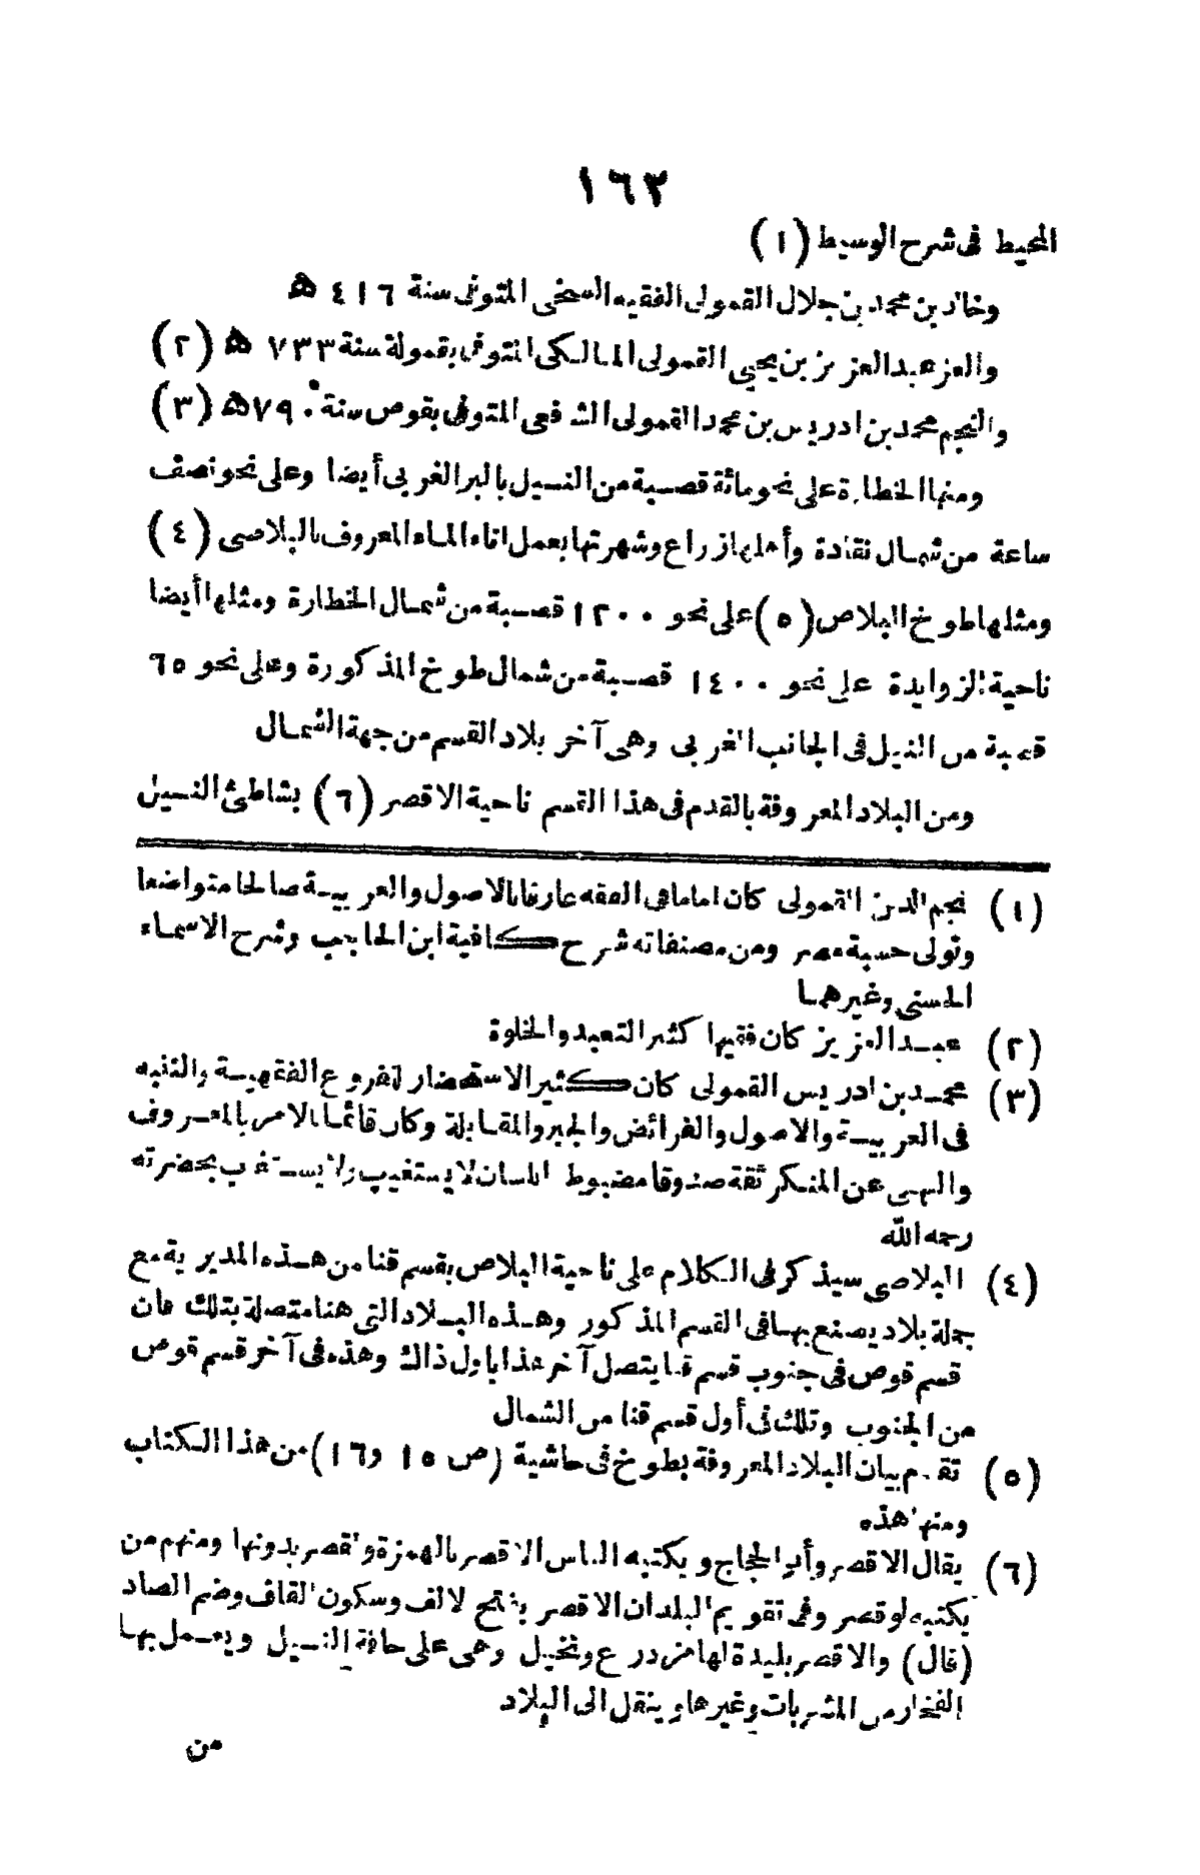 ١٦٢
المحيط فى شرح الوسيط (١)
وخالد بن محمد بن جلال القمولى الفقيه السخى المتوفى سنة ٤١٦ ه
والعز عبد العزيز بن يحيى القمولى المالكى المتوفى بقمولة سنة ٧٣٣ ه (٢)
والنجم محمد بن ادريس بن محمد القمولى الشافعى المتوفى بقوص سنة ٧٩٠ ه (٣)
ومنها الخطارة على نحو مائة قصبة من النيل بالبر الغربى أيضا وعلى نحو نصف
ساعة من شمال نقادة وأهلها زراع وشهرتها بعمل اناء الماء المعروف بالبلاصى (٤)
ومثلها طوخ البلاص (٥) على نحو ١٢٠٠ قصبة من شمال الخطارة ومثلها أيضا
ناحية الزوايدة على نحو ١٤٠٠ قصبة من شمال طوخ المذكورة وعلى نحو ٦٥
قصبة من النيل فى الجانب الغربى وهى آخر بلاد القسم من جهة الشمال
ومن البلاد المعروفة بالقدم فى هذا القسم ناحية الاقصر (٦) بشاطئ النيل
(١) نجم الدين القمولى كان اماما فى الفقه عارفا بالاصول والعربية صالحا متواضعا
وتولى حسبة مصر ومن مصنفاته شرح كافية ابن الحاجب وشرح الاسماء
الحسنى وغيرهما
(٢) عبد العزيز كان فقيها كثير التعبد والخلوة
(٣) محمد بن ادريس القمولى كان كثير الاستحضار للفروع الفقهية والتنبه
فى العربية والاصول والفرائض والجبر والمقابلة وكان قائما بالامر بالمعروف
والنهى عن المنكر ثقة صدوقا مضبوط اللسان لا يستغيب ولا يستغرب بحضرته
رحمه الله
(٤) البلاصى سيذكر فى الكلام على ناحية البلاص بقسم قنا من هذه المديرية مع
جملة بلاد يصنع بها فى القسم المذكور وهذه البلاد التى هنا متصلة بتلك فان
قسم قوص فى جنوب قسم قنا يتصل آخر هذا باول ذاك وهذه فى آخر قسم قوص
من الجنوب وتلك فى أول قسم قنا من الشمال
(٥) تقدم بيان البلاد المعروفة بطوخ فى حاشية (ص ١٥ و١٦) من هذا الكتاب
ومنها هذه
(٦) يقال الاقصر وأبو الحجاج ويكتبه الناس الاقصر بالهمزة ولقصر بدونها ومنهم من
يكتبه لوقصر وفى تقويم البلدان الاقصر بفتح لالف وسكون القاف وضم الصاد
(قال) والاقصر بليدة لها مزدرع ونخيل وهى على حافة النيل ويعمل بها
الفخار من المشربات وغيرها وينقل الى البلاد
من